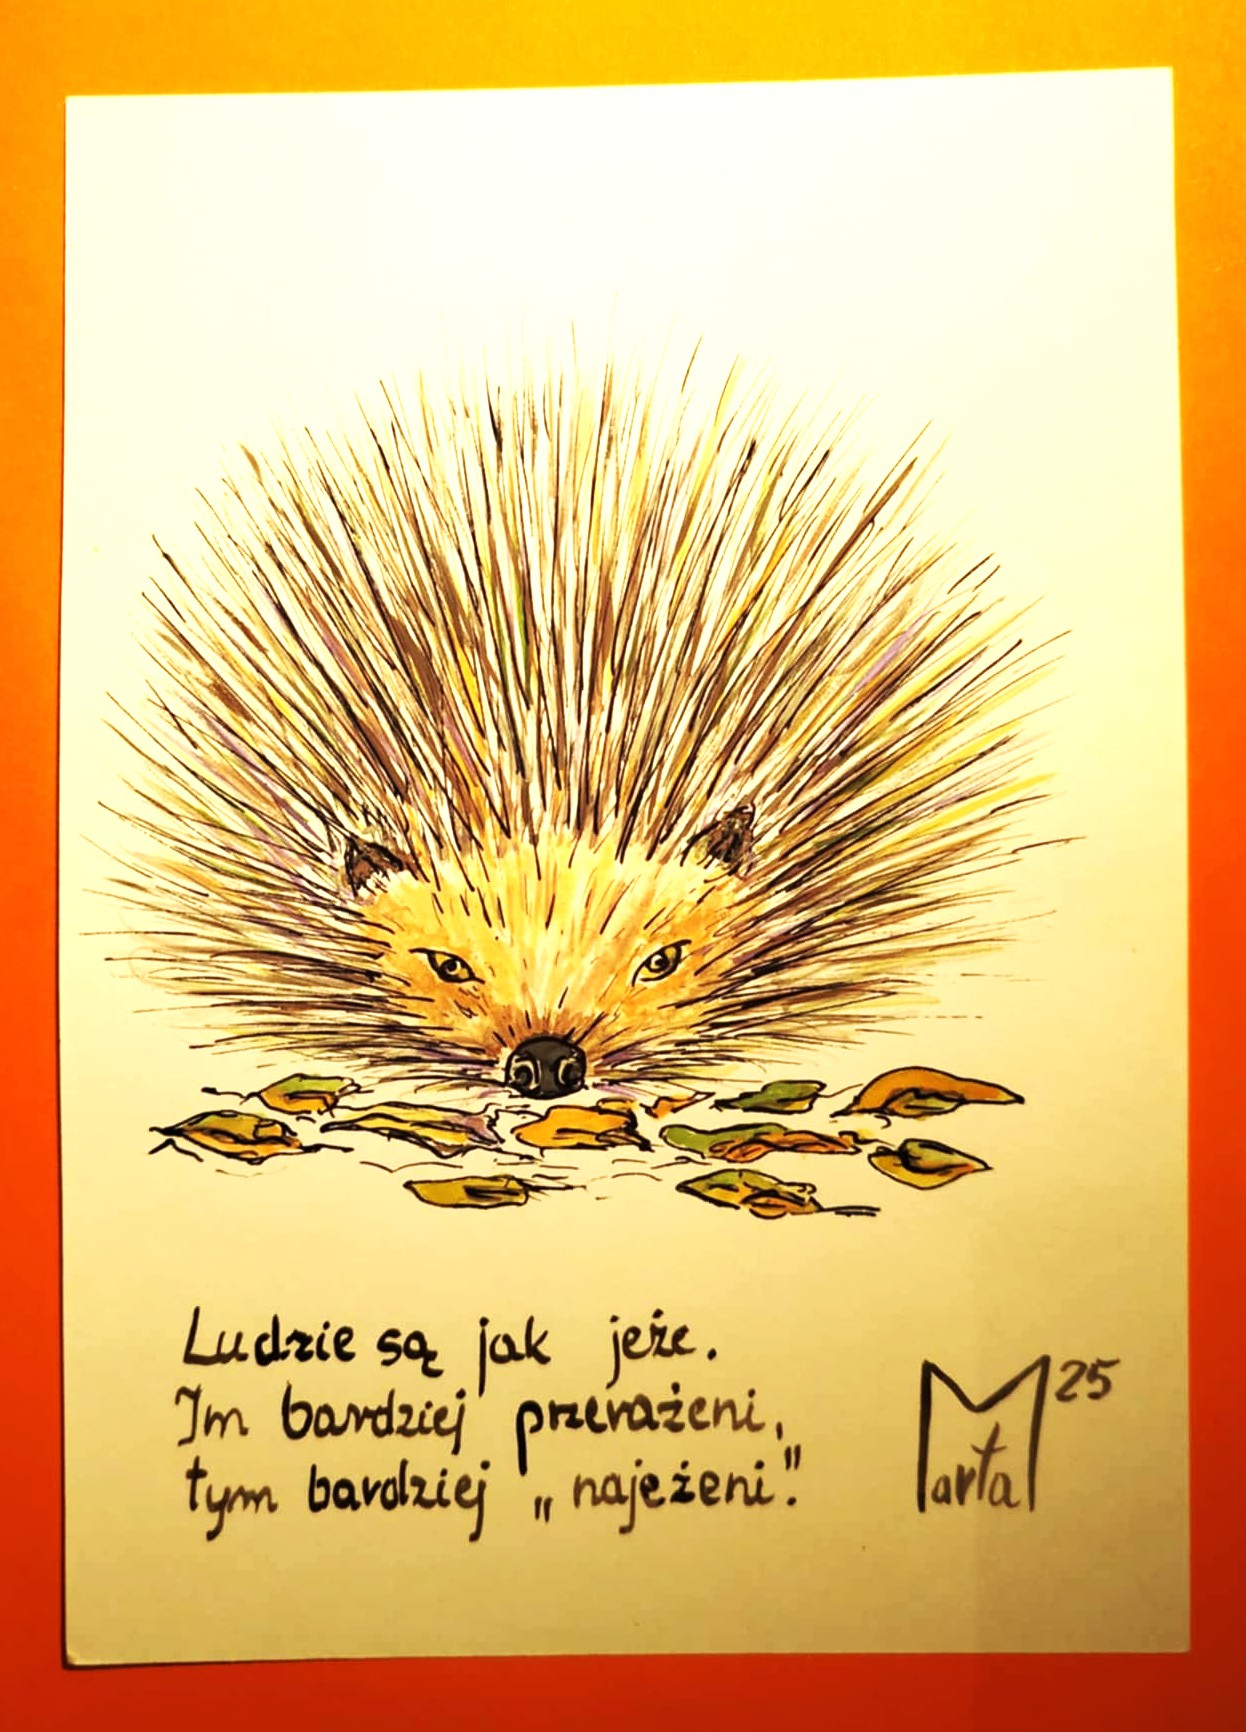 Ludzie są jak jeże.
Im bardziej przerażeni,
tym bardziej „najeżeni".
Marta 25